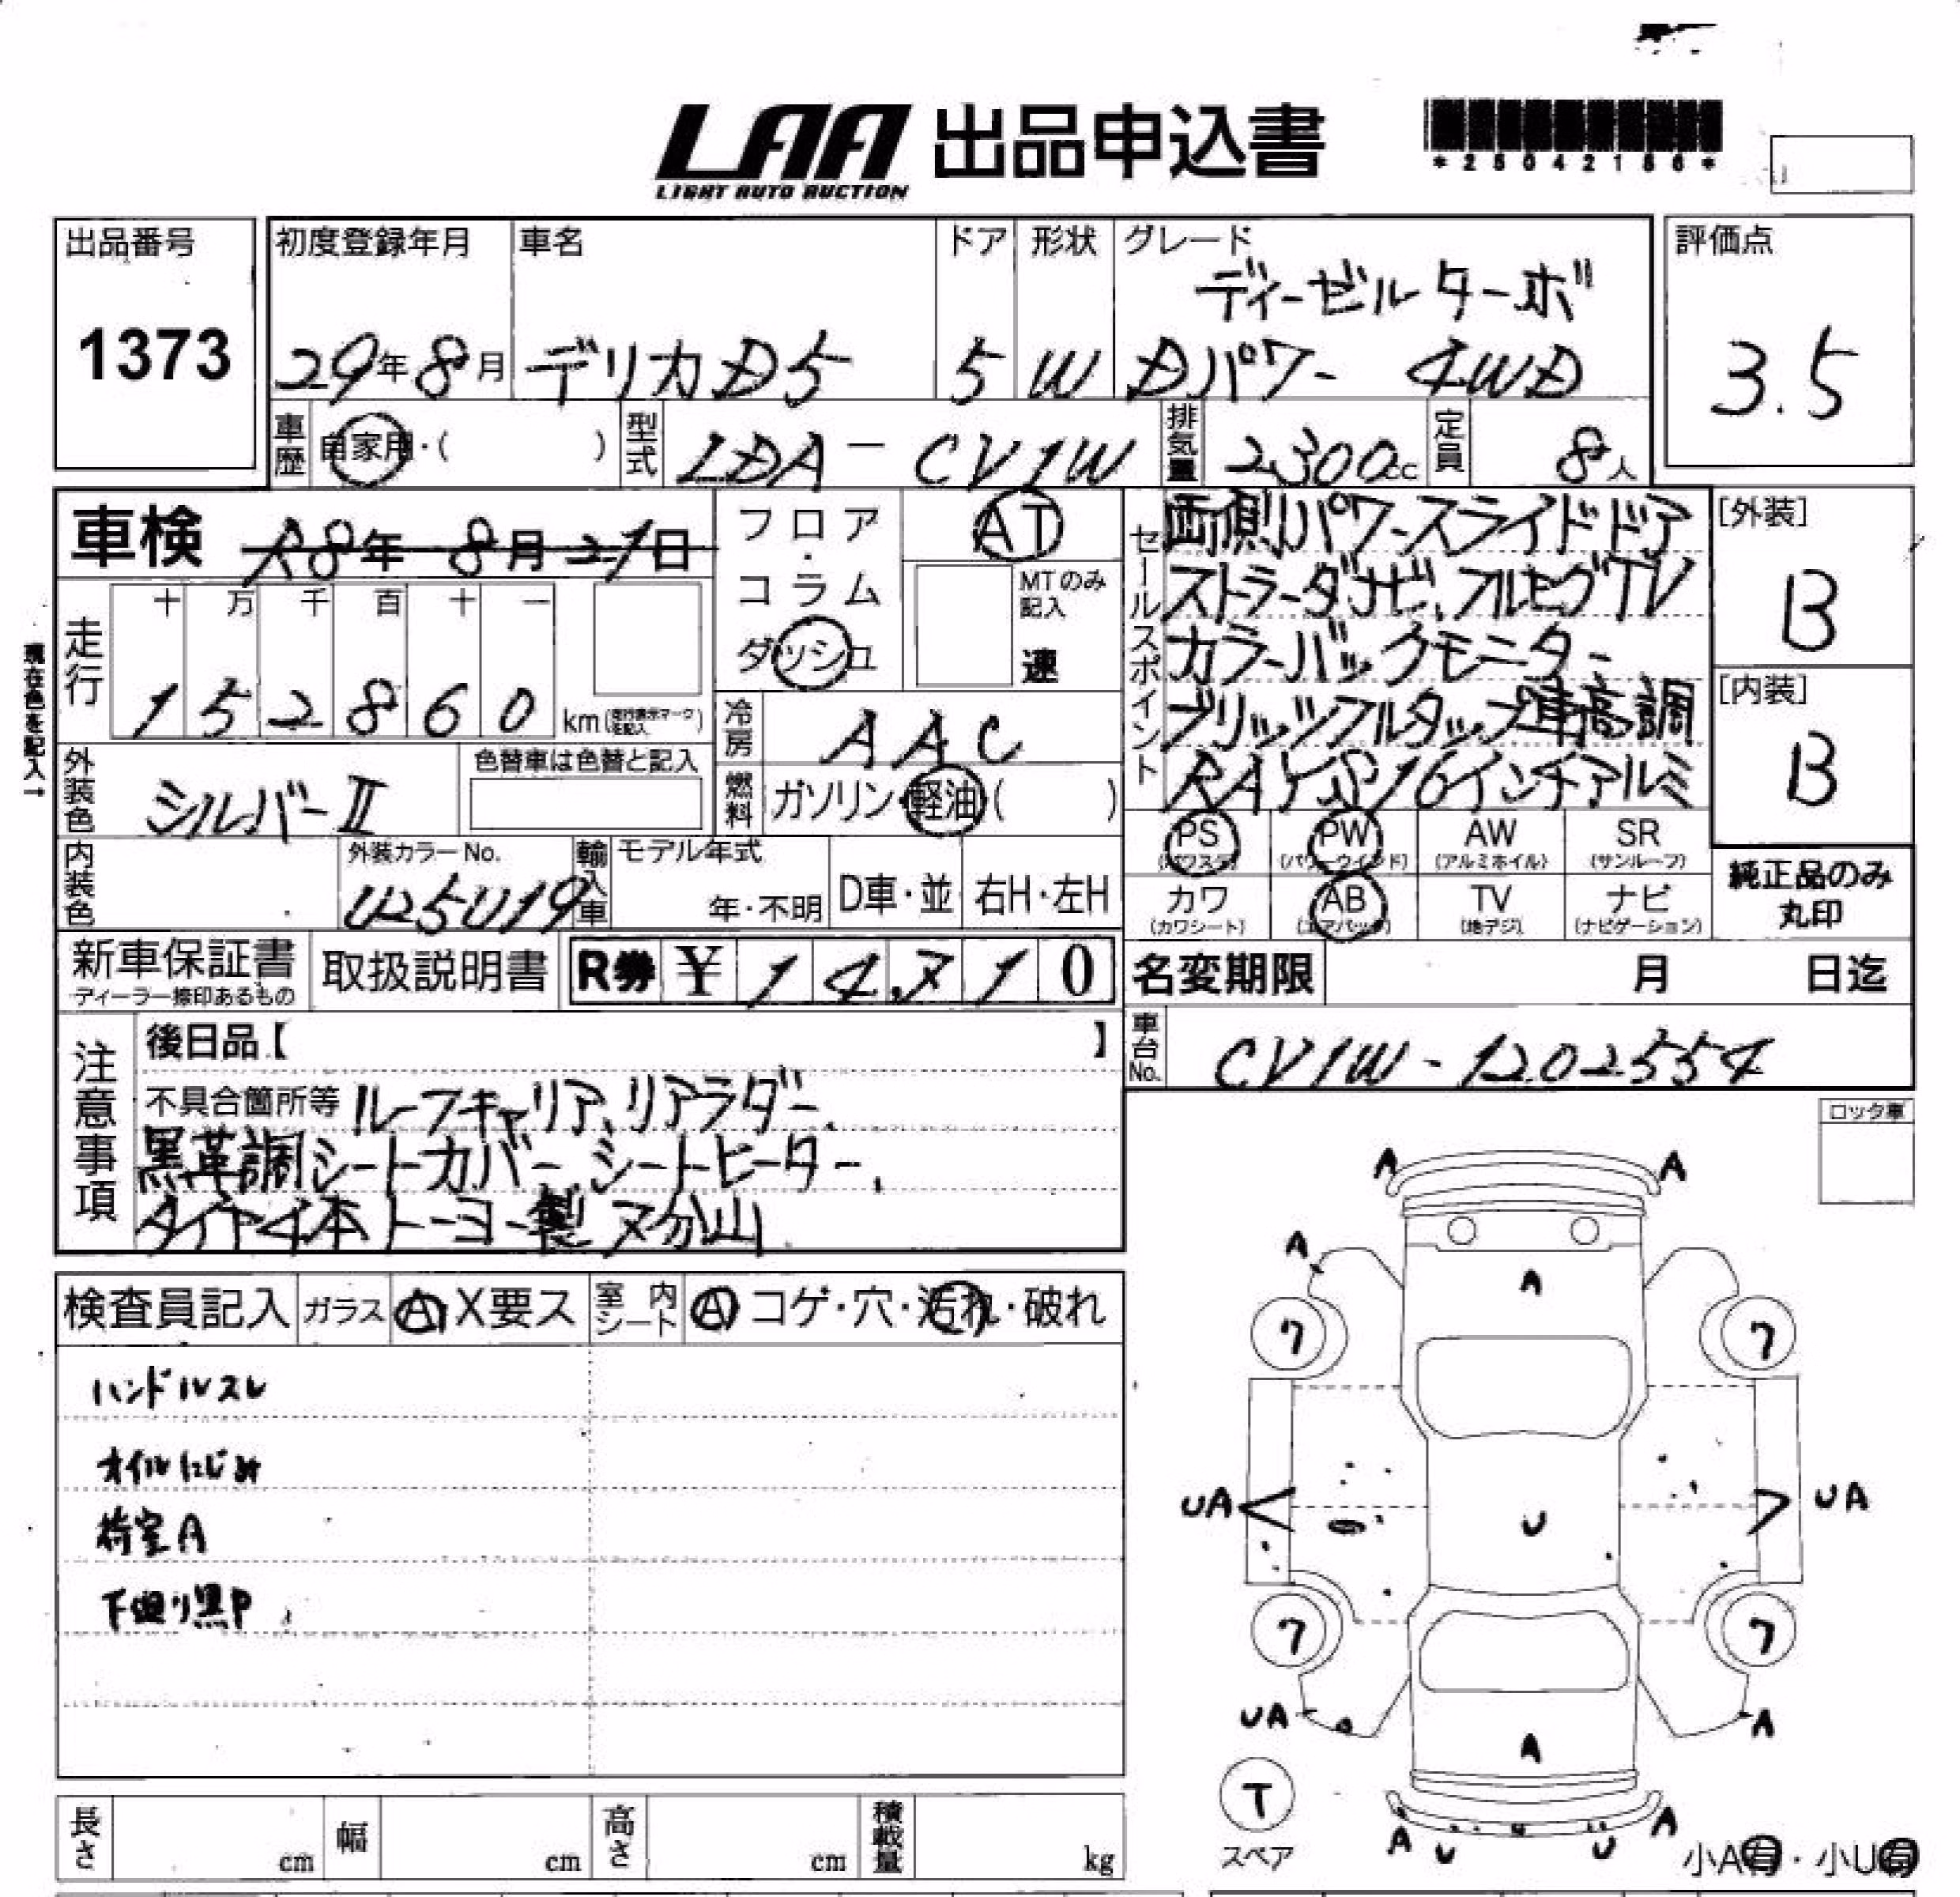 LAA 出品申込書
LIGHT AUTO AUCTION
*25042186*
出品番号
1373
初度登録年月
29年8月
車名
デリカD5
ドア
5
形状
W
グレード
ディーゼルターボ
Dパワー 4WD
評価点
3.5
車歴 自家用・( )
型式 LDA-CV1W
排気量 2300cc
定員 8人
車検 R8年 8月21日
フロア・コラム ダッシュ
AT
MTのみ記入
速
走行
十 万 千 百 十 一
1 5 2 8 6 0 km(走行表示マークを記入)
現在色を記入→
冷房 AAC
燃料 ガソリン・軽油( )
外装色 シルバーⅡ
色替車は色替と記入
内装色
外装カラーNo.
U25U19
輸入車
モデル年式
年・不明
D車・並
右H・左H
セールスポイント
両側パワースライドドア
ストラーダナビ、フルセグTV
カラーバックモニター
ブリッツフルタップ車高調
RAYS16インチアルミ
[外装]
B
[内装]
B
PS (パワステ)
PW (パワーウインド)
AW (アルミホイル)
SR (サンルーフ)
カワ (カワシート)
AB (エアバック)
TV (地デジ)
ナビ (ナビゲーション)
純正品のみ
丸印
新車保証書
ディーラー捺印あるもの
取扱説明書
R券 ¥ 14,710
名変期限 月 日迄
車台No. CV1W-1202554
注意事項
後日品【 】
不具合箇所等 ルーフキャリア、リアラダー、
黒革調シートカバー、シートヒーター、
タイヤ4本トーヨー製7分山
ロック車
検査員記入
ガラス A X要ス
室内シート A コゲ・穴・汚れ・破れ
ハンドルスレ
オイルにじみ
荷室A
下廻り黒P
A A
A
A
7 7
UA UA
U
7 7
UA A
A
T
スペア
A U U A
小A有・小U有
長さ cm
幅 cm
高さ cm
積載量 kg